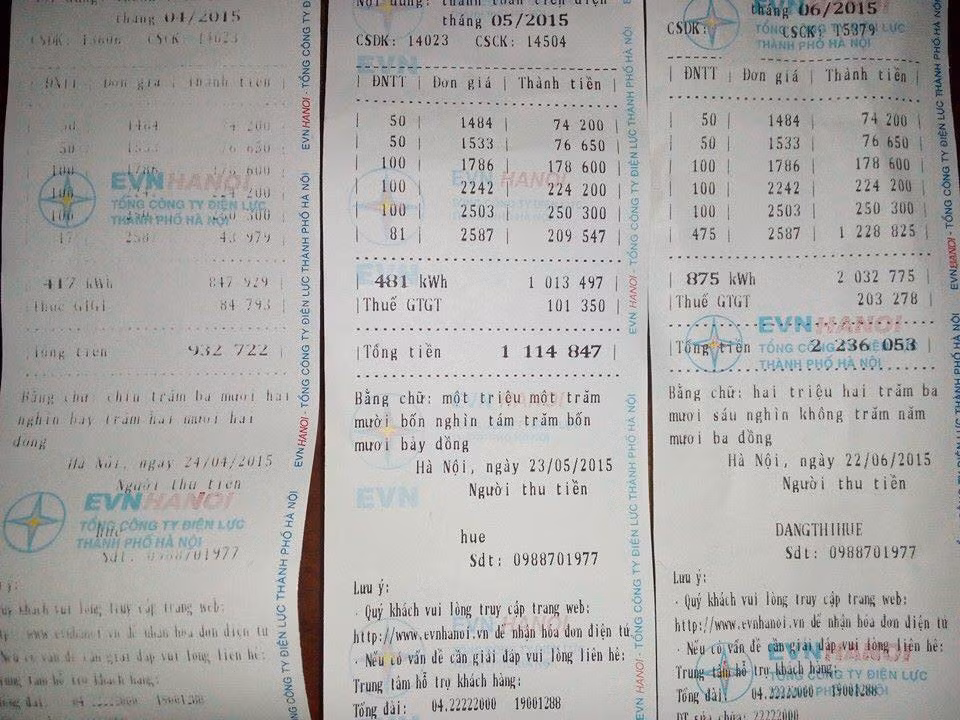 tháng 04/2015
CSDK: 13606 CSCK: 14023
ĐNTT | Đơn giá | Thành tiền
50 1484 74 200
50 1533 76 650
100 1786
100
100 250 300
47 2587
417 kWh 847 929
Thuế GTGT 84 793
Tổng tiền 932 722
Bằng chữ: chín trăm ba mươi hai
nghìn bảy trăm hai mươi hai
đồng
Hà Nội, ngày 24/04/2015
Người thu tiền
Hue
Sdt: 0988701977
Quý khách vui lòng truy cập trang web:
www.evnhanoi.vn để nhận hóa đơn điện tử
Nếu có vấn đề cần giải đáp vui lòng liên hê:
Trung tâm hỗ trợ khách hàng:
Tổng đài: 04.22222000 19001288
EVNHANOI
TỔNG CÔNG TY ĐIỆN LỰC
THÀNH PHỐ HÀ NỘI
EVNHANOI
TỔNG CÔNG TY ĐIỆN LỰC
THÀNH PHỐ HÀ NỘI
EVNHANOI - TỔNG CÔNG TY ĐIỆN LỰC THÀNH PHỐ HÀ NỘI
Nội dung: thanh toán tiền điện
tháng 05/2015
CSDK: 14023 CSCK: 14504
| ĐNTT | Đơn giá | Thành tiền |
| 50 | 1484 | 74 200 |
| 50 | 1533 | 76 650 |
| 100 | 1786 | 178 600 |
| 100 | 2242 | 224 200 |
| 100 | 2503 | 250 300 |
| 81 | 2587 | 209 547 |
| 481 kWh 1 013 497 |
|Thuế GTGT 101 350 |
|Tổng tiền 1 114 847 |
Bằng chữ: một triệu một trăm
mười bốn nghìn tám trăm bốn
mươi bảy đồng
Hà Nội, ngày 23/05/2015
Người thu tiền
hue
Sdt: 0988701977
Lưu ý:
- Quý khách vui lòng truy cập trang web:
http://www.evnhanoi.vn để nhận hóa đơn điện tử
- Nếu có vấn đề cần giải đáp vui lòng liên hê:
Trung tâm hỗ trợ khách hàng:
Tổng đài: 04.22222000 19001288
EVN
EVN
EVN
EVN HANOI - TỔNG CÔNG TY ĐIỆN LỰC THÀNH PHỐ HÀ NỘI
tháng 06/2015
CSDK: CSCK: 15379
| ĐNTT | Đơn giá | Thành tiền |
| 50 | 1484 | 74 200 |
| 50 | 1533 | 76 650 |
| 100 | 1786 | 178 600 |
| 100 | 2242 | 224 200 |
| 100 | 2503 | 250 300 |
| 475 | 2587 | 1 228 825 |
| 875 kWh 2 032 775 |
|Thuế GTGT 203 278 |
|Tổng tiền 2 236 053 |
Bằng chữ: hai triệu hai trăm ba
mươi sáu nghìn không trăm năm
mươi ba đồng
Hà Nội, ngày 22/06/2015
Người thu tiền
DANGTHIHUE
Sdt: 0988701977
Lưu ý:
- Quý khách vui lòng truy cập trang web:
http://www.evnhanoi.vn để nhận hóa đơn điện tử
- Nếu có vấn đề cần giải đáp vui lòng liên hê:
Trung tâm hỗ trợ khách hàng:
Tổng đài: 04.22222000 19001288
ĐT sửa chữa: 22222000
EVNHANOI
TỔNG CÔNG TY ĐIỆN LỰC
THÀNH PHỐ HÀ NỘI
EVNHANOI - TỔNG CÔNG TY ĐIỆN LỰC THÀNH PHỐ HÀ NỘI